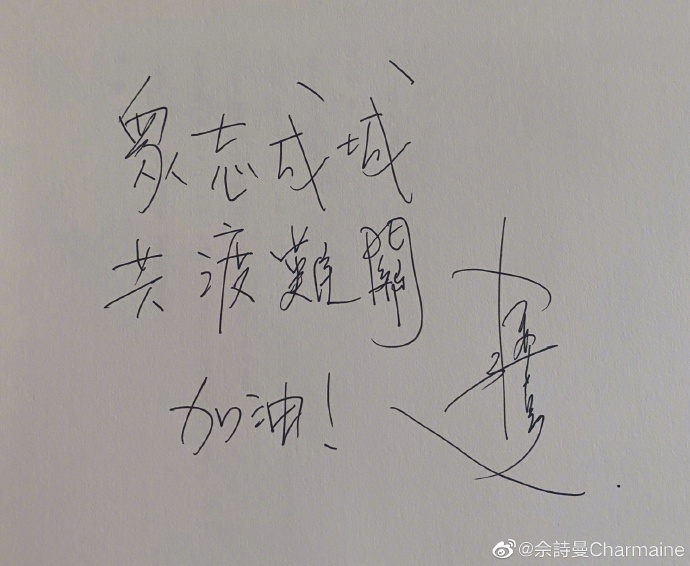 眾志成城
共渡難關
加油！
@佘詩曼Charmaine